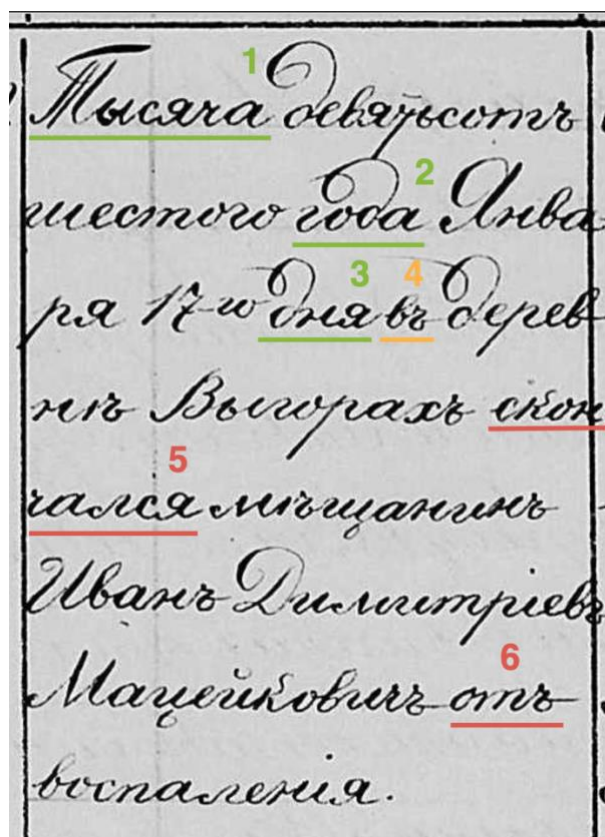 Тысяча девятьсотъ
шестого года Янва
ря 17-го дня въ дерев
нѣ Выгорахъ скон
чался мѣщанинъ
Иванъ Димитріевъ
Мацейковичъ отъ
воспаленія.
1
2
3
4
5
6